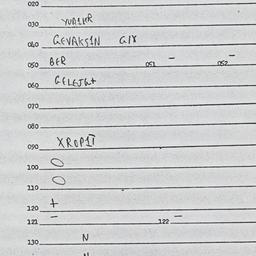 020
030 YURIKR
040 GEVAKSIN GIY
050 BER 051 – 052 –
060 GELEJG+
070
080
090 XROPIT
100 0
110 0
120 +
121 – 122 –
130 N
N